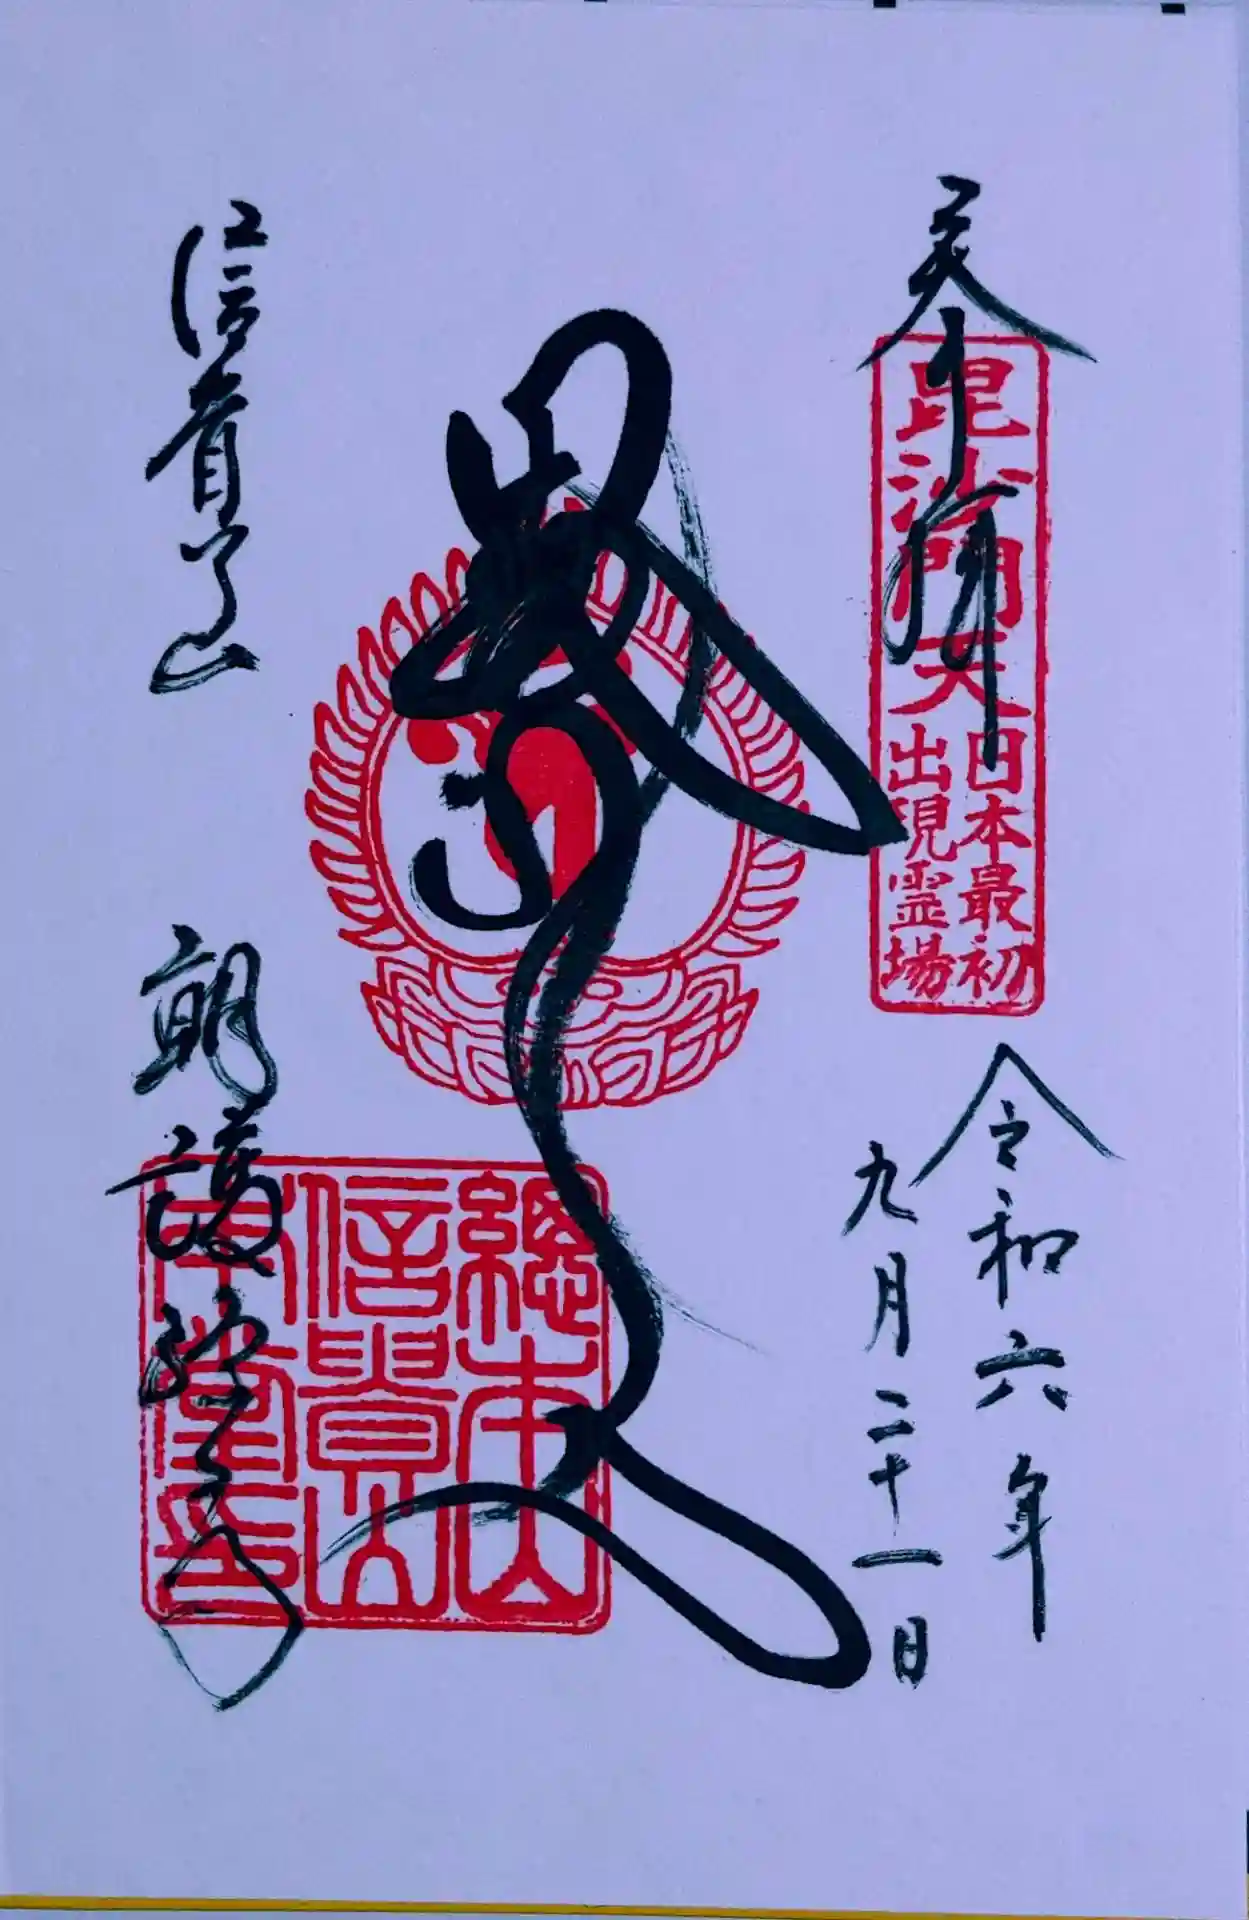 奉拝
毘沙門天
日本最初
出現霊場
令和六年
九月二十一日
總本山
信貴山
本堂印
信貴山
朝護孫子寺